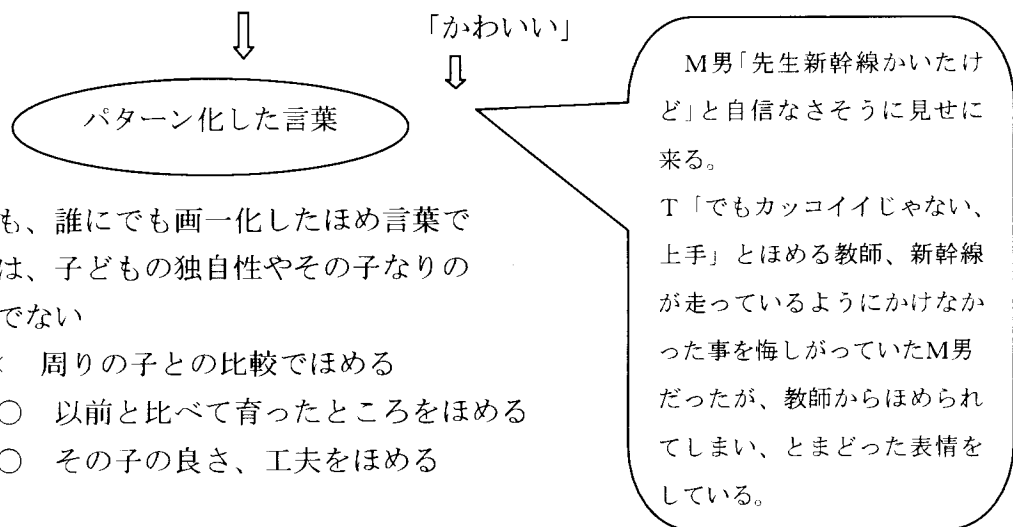 「かわいい」
パターン化した言葉
も、誰にでも画一化したほめ言葉で
は、子どもの独自性やその子なりの
でない
周りの子との比較でほめる
○ 以前と比べて育ったところをほめる
○ その子の良さ、工夫をほめる
M男「先生新幹線かいたけ
ど」と自信なさそうに見せに
来る。
T「でもカッコイイじゃない、
上手」とほめる教師、新幹線
が走っているようにかけなか
った事を悔しがっていたM男
だったが、教師からほめられ
てしまい、とまどった表情を
している。